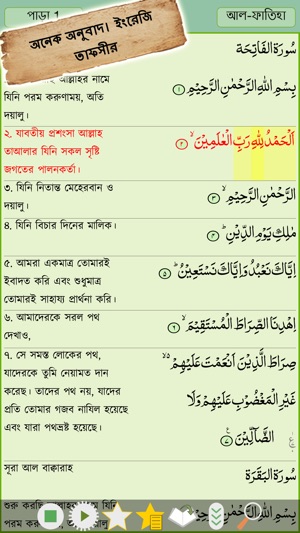 পাড়া 1
আল-ফাতিহা
অনেক অনুবাদ। ইংরেজি
তাফসীর
سُورَةُ الفَاتِحَة
আল্লাহর নামে
যিনি পরম করুণাময়, অতি
দয়ালু।
بِسْمِ اللّٰهِ الرَّحْمٰنِ الرَّحِيْمِ ۝١
২. যাবতীয় প্রশংসা আল্লাহ
তাআলার যিনি সকল সৃষ্টি
জগতের পালনকর্তা।
اَلْحَمْدُ لِلّٰهِ رَبِّ الْعٰلَمِيْنَ ۝٢
৩. যিনি নিতান্ত মেহেরবান ও
দয়ালু।
الرَّحْمٰنِ الرَّحِيْمِ ۝٣
৪. যিনি বিচার দিনের মালিক।
مٰلِكِ يَوْمِ الدِّيْنِ ۝٤
৫. আমরা একমাত্র তোমারই
ইবাদত করি এবং শুধুমাত্র
তোমারই সাহায্য প্রার্থনা করি।
اِيَّاكَ نَعْبُدُ وَاِيَّاكَ نَسْتَعِيْنُ ۝٥
৬. আমাদেরকে সরল পথ
দেখাও,
اِهْدِنَا الصِّرَاطَ الْمُسْتَقِيْمَ ۝٦
৭. সে সমস্ত লোকের পথ,
যাদেরকে তুমি নেয়ামত দান
করেছ। তাদের পথ নয়, যাদের
প্রতি তোমার গজব নাযিল হয়েছে
এবং যারা পথভ্রষ্ট হয়েছে।
صِرَاطَ الَّذِيْنَ اَنْعَمْتَ عَلَيْهِمْ
غَيْرِ الْمَغْضُوْبِ عَلَيْهِمْ وَلَا
الضَّآلِّيْنَ ۝٧
সূরা আল বাক্বারাহ
سُورَةُ البَقَرَة
শুরু করছি আল্লাহর নামে যিনি
পরম করুণাময়, অতি দয়ালু।
بِسْمِ اللّٰهِ الرَّحْمٰنِ الرَّحِيْمِ